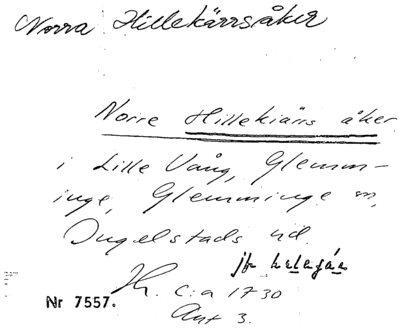 Norra Hillekärrsåker
Norre Hillekiärs åker
i Lille Vång, Glemm-
inge, Glemminge sn,
Ingelstads hd.
jfr
c:a 1730
Nr 7557.
Ant 3.